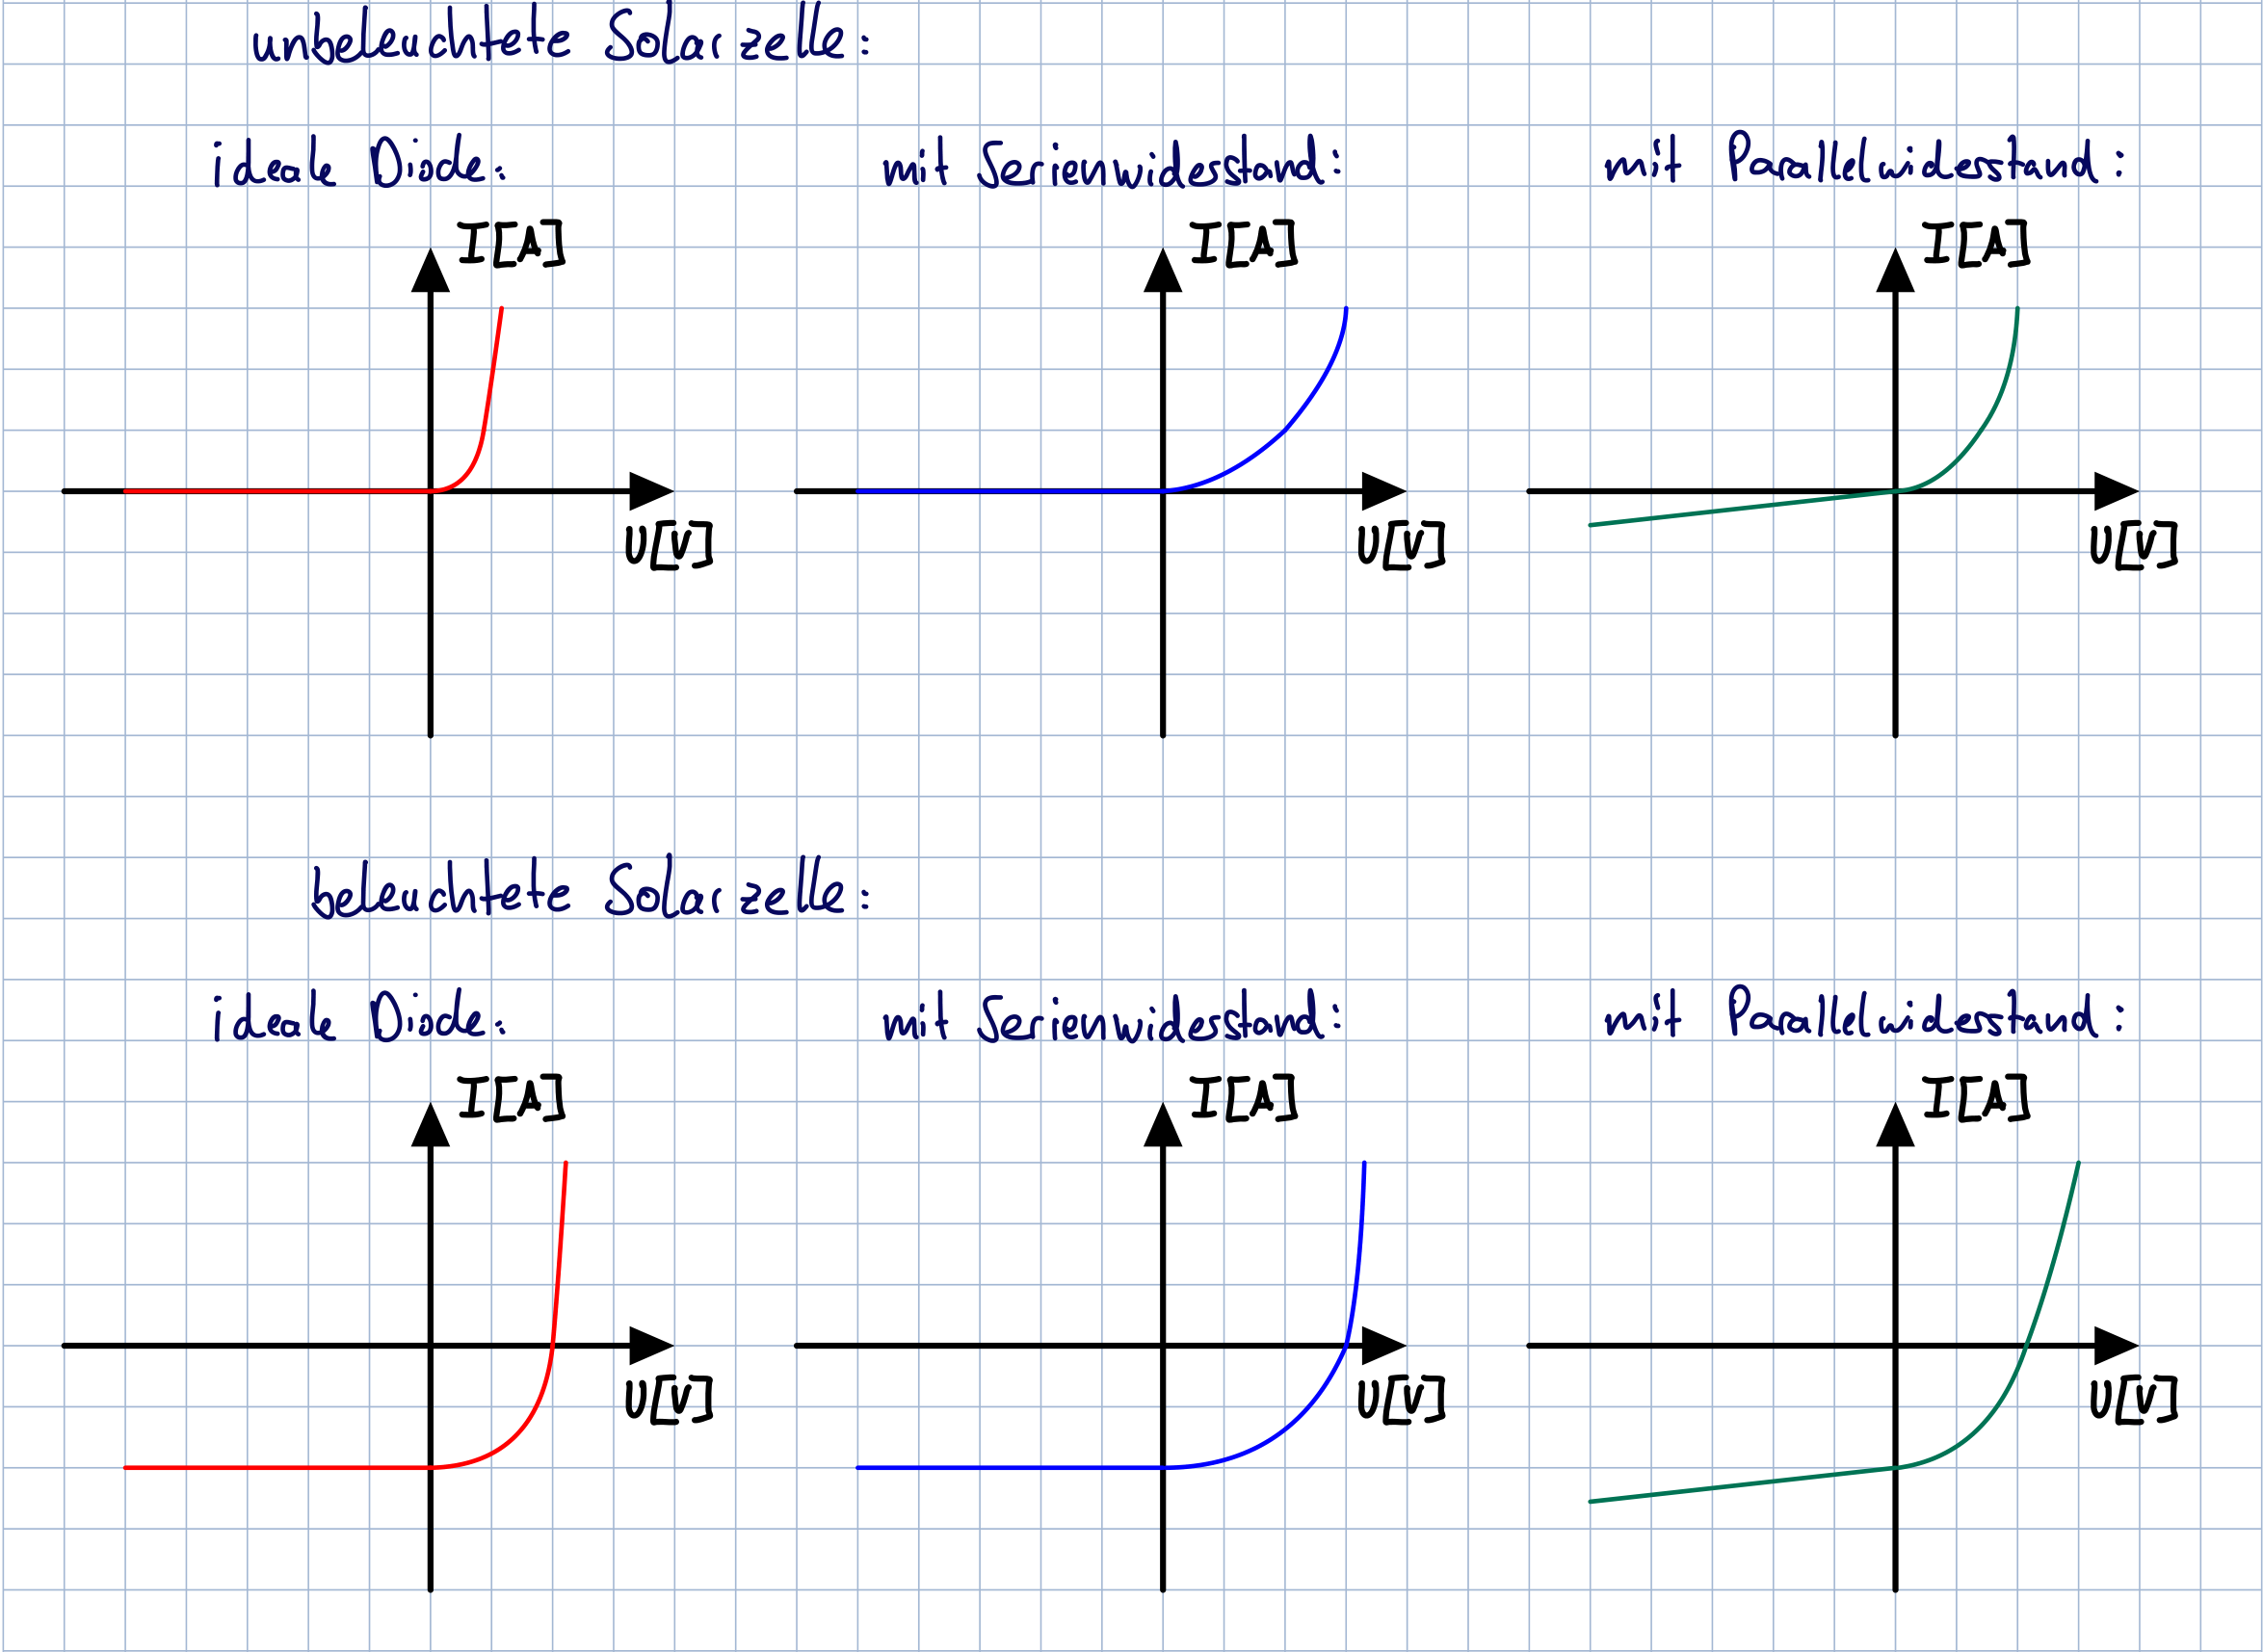 unbeleuchtete Solarzelle:
ideale Diode:
mit Serienwiderstand:
mit Parallelwiderstand:
I[A]
I[A]
I[A]
U[V]
U[V]
U[V]
beleuchtete Solarzelle:
ideale Diode:
mit Serienwiderstand:
mit Parallelwiderstand:
I[A]
I[A]
I[A]
U[V]
U[V]
U[V]